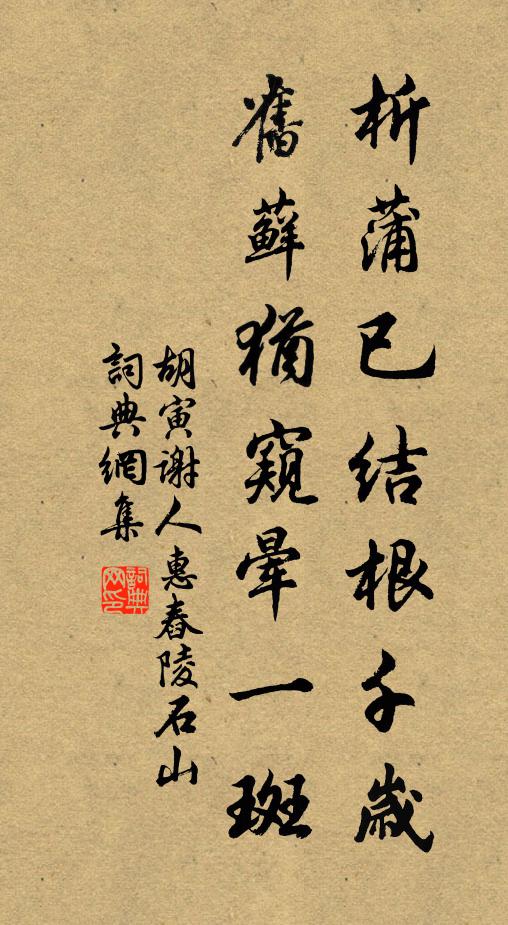 析蒲已結根千歲
舊蘚猶窺暈一斑
胡寅謝人惠舂陵石山
詞典網集
詞典网印